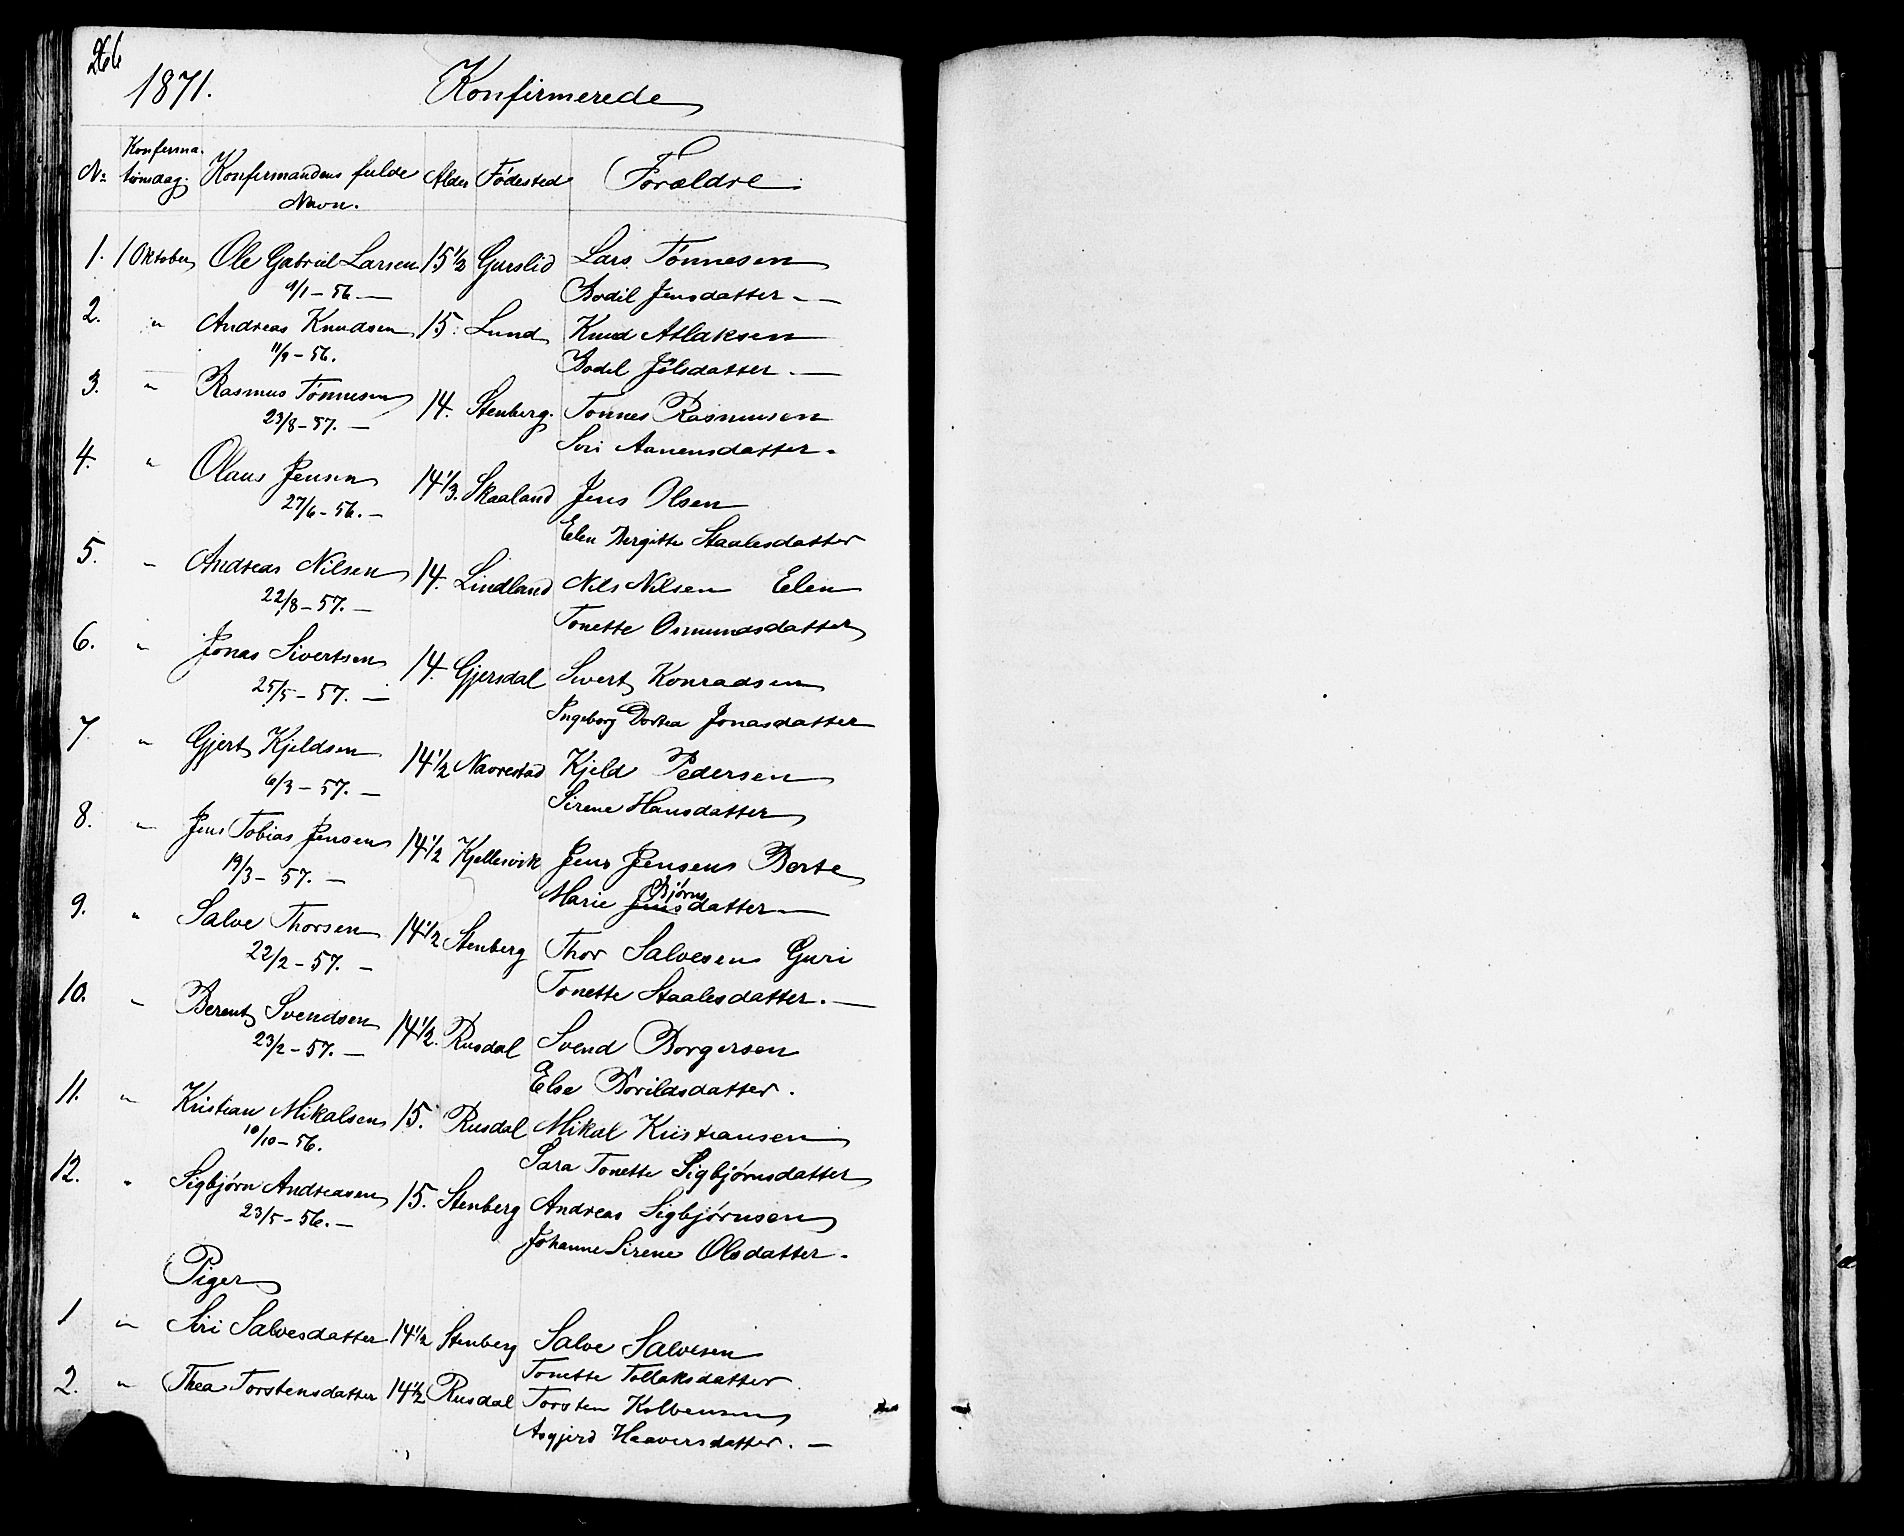 266
1871. Konfirmerede
No Konfirmationsdag. Konfirmandens fulde Navn. Alder Fødested Forældre
1. 1 Oktober Ole Gabriel Larsen 15 1/2 Gurslid Lars Tønnesen
9/1 - 56 — Bodil Jensdatter - —
2. " Andreas Knudsen 15. Lund Knud Atlaksen
11/9 - 56. Bodil Jølsdatter. —
3. " Rasmus Tønnesen 14. Stenberg. Tonnes Rasmussen
23/8 - 57. — Siri Aanensdatter.
4. " Olaus Jensen 14 1/3. Skaaland Jens Olsen
27/6 - 56. — Elen Bergitte Staalesdatter
5. " Andreas Nilsen 14. Lindland Nils Nilsen Elen
22/8 - 57. — Tonette Osmundsdatter
6. " Jonas Sivertsen 14. Gjersdal Sivert Konradsen
25/5 - 57. — Ingeborg Dortea Jonasdatter
7. " Gjert Kjeldsen 14 1/2 Navrestad Kjeld Pedersen
6/3 - 57. — Sirene Hansdatter
8. " Jens Tobias Jensen 14 1/2 Kjellesvik Jens Jensens Berte
19/3 - 57. — Marie Jens Bjørnsdatter —
9. " Salve Thorsen 14 1/2 Stenberg Thor Salvesen Guri
22/2 - 57. — Tonette Staalesdatter. —
10. " Berent Svendsen 14 1/2. Rusdal Svend Borgersen
23/2 - 57. — Else Torildsdatter.
11. " Kristian Mikalsen 15. Rusdal Mikal Kristiansen
10/10 - 56. Sara Tonette Sigbjørnsdatter
12. " Sigbjørn Andreasen 15. Stenberg Andreas Sigbjørnsen
23/5 - 56. — Johanne Sirene Olsdatter -
Piger
1 " Siri Salvesdatter 14 1/2 Stenberg Salve Salvesen
Tonette Tollaksdatter
2. " Thea Torstensdatter 14 1/2 Rusdal Torsten Kolbensen
Asgjerd Haaversdatter. —